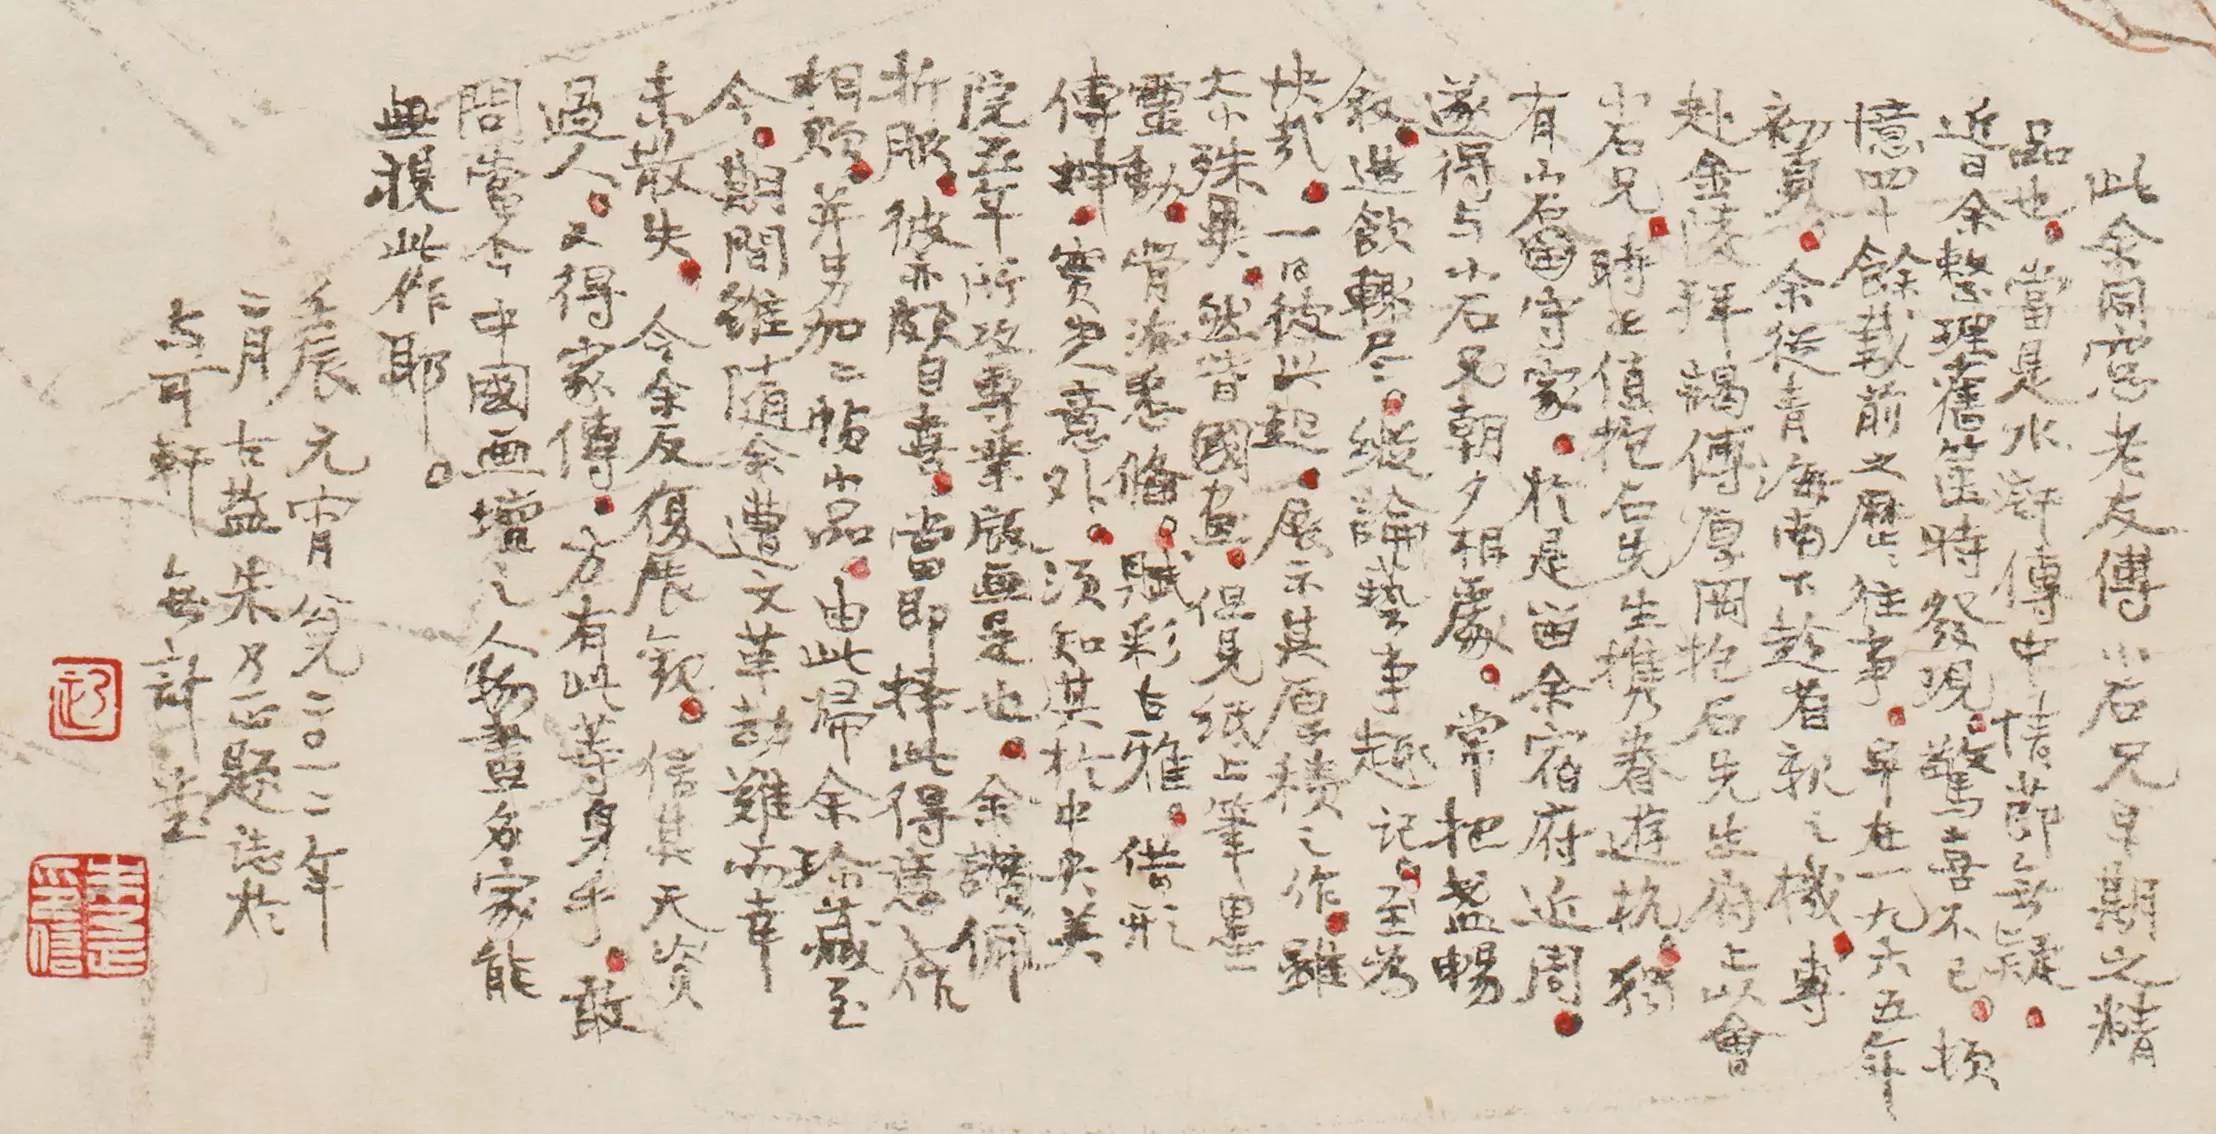 此余同窓老友傅小石兄早期之精
品也。當是水滸傳中情節無疑。
近日余整理舊箧時發現。驚喜不已。頓
憶四十餘載前之歷歷往事。早在一九六五年
初夏。余從青海南下趁省親之機。專
赴金陵拜謁傅厚岡抱石先生府上以會
小石兄。時正值抱石先生携乃眷遊杭。獨
有小石留守家。於是留余宿府近周。
遂得与小石兄朝夕相處。常把盞暢
敘。進飲輒尽。縱論藝事趣記。至為
快哉。一日彼興起。展示其厚積之作。雖
大小殊異。然皆國畫。但見紙上筆墨
靈動。骨法悉俻。賦彩古雅。借形
傳神。實出意外。須知其於中央美
院五年所攻專業版画是也。余讚佩
折服。彼亦頗自喜。当即择此得意作
相贈。并另加二帖小品。由此歸余珍藏至
今。期間雖随余遭文革劫難而幸
未散失。今余反復展觀。信其天資
過人。又得家傳。方有此等身手。敢
問當今中國画壇之人物畫名家能
無視此作耶。
壬辰元宵翁九二〇一二年
二月古盐朱乃正題誌於
与可軒無訐堂